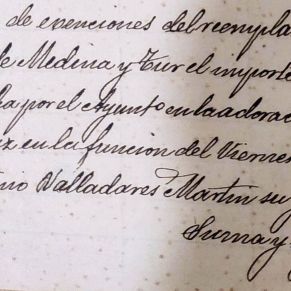 de exenciones del reempla
de Medina y Tur el importe
ha por el Ayunto en la adorac
z en la funcion del Viernes
nio Valladares Martin su
Suma y